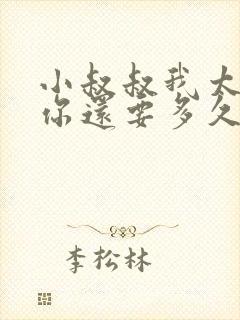 小叔叔我太
你還要多久
李松林